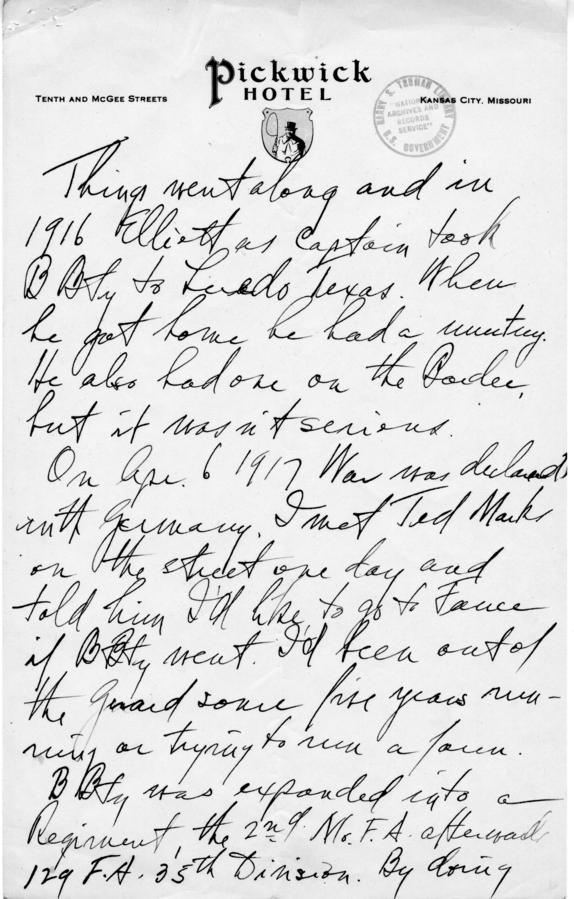 Pickwick
HOTEL
TENTH AND MCGEE STREETS
KANSAS CITY, MISSOURI
HARRY S. TRUMAN LIBRARY
"NATIONAL
ARCHIVES AND
RECORDS
SERVICE"
U.S. GOVERNMENT
Things went along and in
1916 Elliott as Captain took
B Bty to Laredo Texas. When
he got home he had a mutiny.
He also had one on the Border,
but it wasn't serious.
On Apr. 6 1917 War was declared
with Germany. I met Ted Marks
on the street one day and
told him I'd like to go to France
if B Bty went. I'd been out of
the Guard some five years run-
ning or trying to run a farm.
B Bty was expanded into a
Regiment, the 2nd Mo. F.A. afterwards
129 F.A. 35th Division. By doing